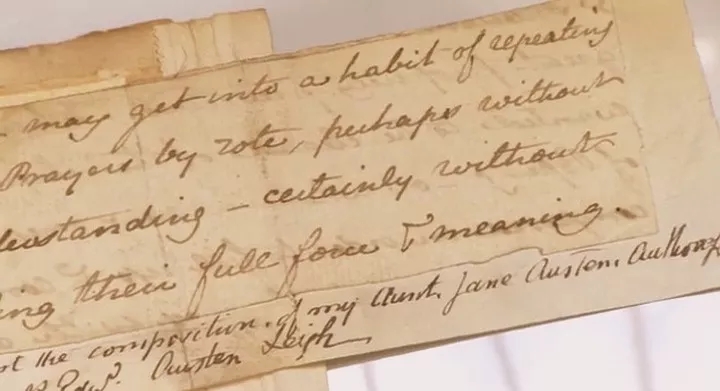 may get into a habit of repeating
Prayers by rote, perhaps without
derstanding – certainly without
ing their full force & meaning.
the composition of my Aunt, Jane Austen, Author of
Edwd. Austen Leigh